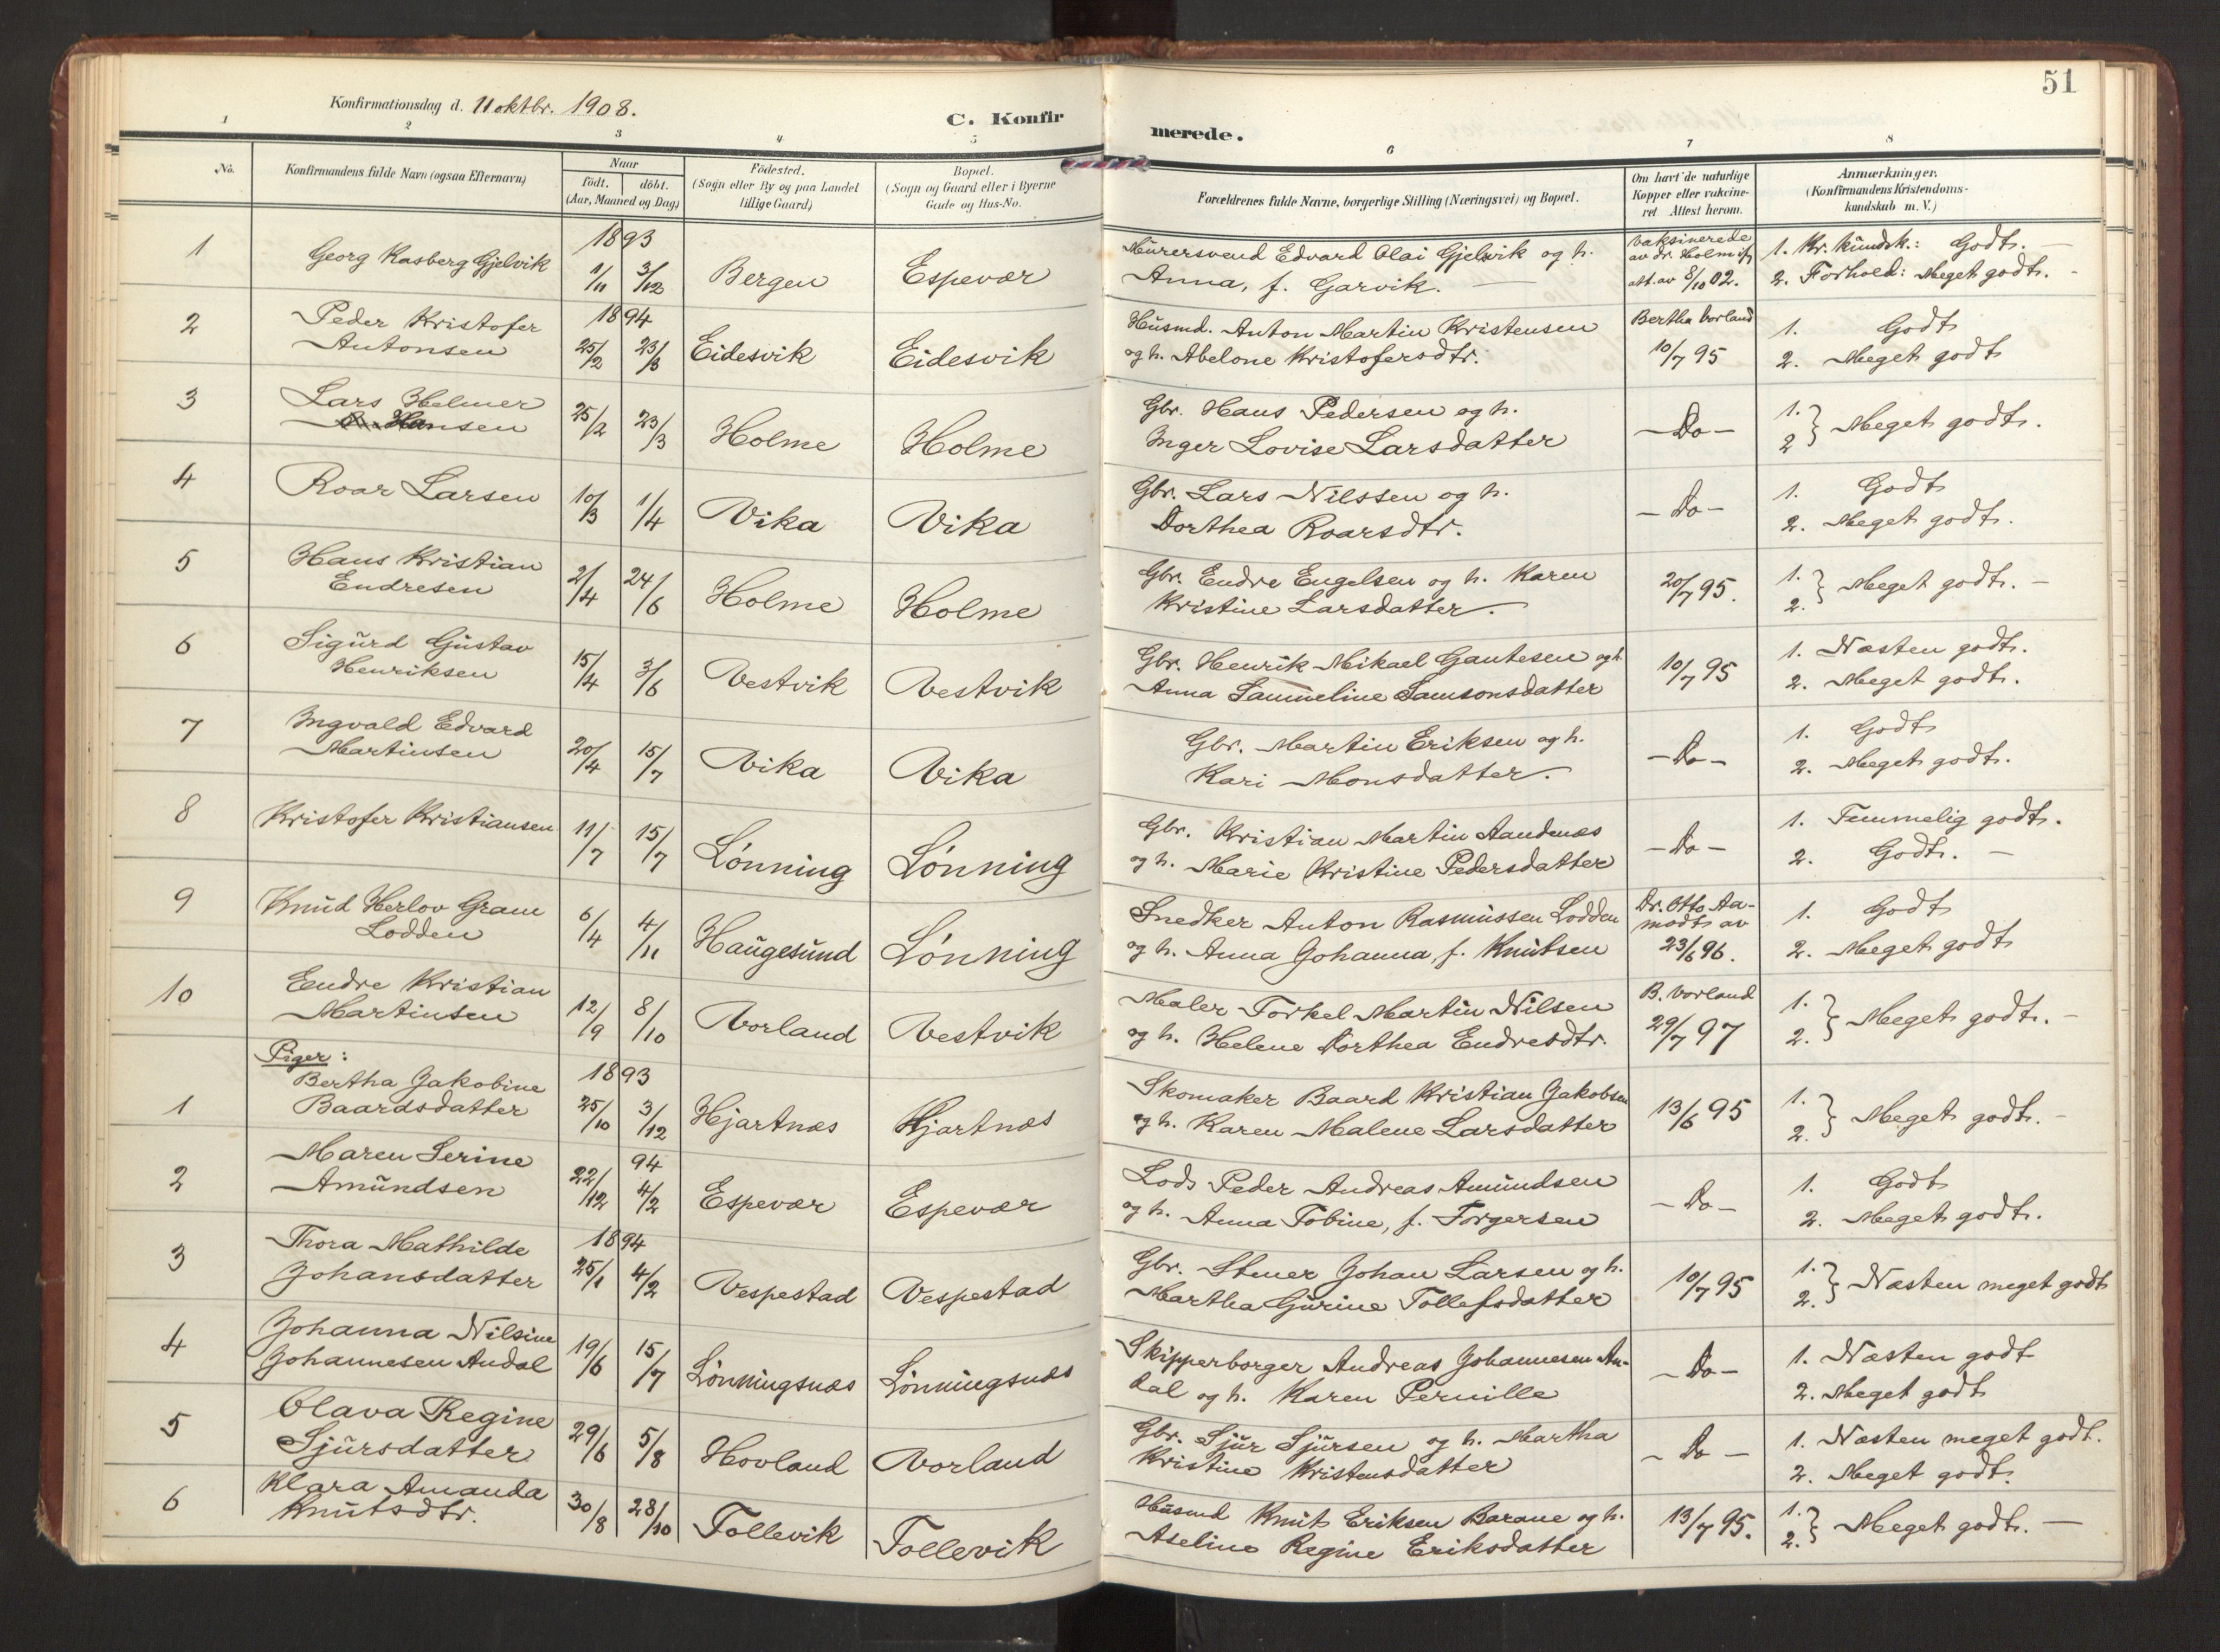 51
Konfirmationsdag d. 11 oktbr. 1908.
C. Konfirmerede.
1 2 3 4 5 6 7 8
No. | Konfirmandens fulde Navn (ogsaa Efternavn) | Naar født. døbt. (Aar, Maaned og Dag) | Fødested. (Sogn eller By og paa Landet tillige Gaard) | Bopæl. (Sogn og Gaard eller i Byerne Gade og Hus-No. | Forældrenes fulde Navne, borgerlige Stilling (Næringsvei) og Bopæl. | Om havt de naturlige Kopper eller vakcineret Attest herom. | Anmærkninger. (Konfirmandens Kristendomskundskab m. V.)
1 | Georg Kasberg Gjelvik | 1893 1/11 | 3/12 | Bergen | Espevær | Murersvend Edvard Olai Gjelvik og h. Anna, f. Garvik. | Vaksinerede av dr. Holm ifg att. av 8/10 02. | 1. Kr. kundsk.: Godt. 2. Forhold: Meget godt.
2 | Peder Kristofer Antonsen | 1894 25/2 | 23/3 | Eidesvik | Eidesvik | Husmd. Anton Martin Kristensen og h. Abelone Kristofersdtr. | Bertha Vorland 10/7 95 | 1. Godt 2. Meget godt
3 | Lars Helmer Hansen | 25/2 | 23/3 | Holme | Holme | Gbr. Hans Pedersen og h. Inger Lovise Larsdatter | - Do - | 1. 2 } Meget godt.
4 | Roar Larsen | 10/3 | 1/4 | Vika | Vika | Gbr. Lars Nilssen og h. Dorthea Roarsdtr. | - Do - | 1. Godt 2. Meget godt.
5 | Hans Kristian Endresen | 2/4 | 24/6 | Holme | Holme | Gbr. Endre Engelsen og h. Karen Kristine Larsdatter. | 20/7 95. | 1. 2. } Meget godt. -
6 | Sigurd Gustav Henriksen | 15/4 | 3/6 | Vestvik | Vestvik | Gbr. Henrik Mikael Gautesen og h. Anna Sammeline Samsonsdatter | 10/7 95 | 1. Næsten godt. 2. Meget godt.
7 | Ingvald Edvard Martinsen | 20/4 | 15/7 | Vika | Vika | Gbr. Martin Eriksen og h. Kari Monsdatter. | - Do - | 1. Godt 2. Meget godt.
8 | Kristofer Kristiansen | 11/7 | 15/7 | Lónning | Lónning | Gbr. Kristian Martin Aandenæs og h. Marie Kristine Pedersdatter | - Do - | 1. Temmelig godt. 2. Godt. -
9 | Knud Herlov Gram Lodden | 6/4 | 4/11 | Haugesund | Lónning | Snedker Anton Rasmussen Lodden og h. Anna Johanna, f. Knutsen | Dr. Otto Aamodt av 23/6 96. | 1. Godt 2. Meget godt
10 | Endre Kristian Martinsen | 12/9 | 8/10 | Vorland | Vestvik | Maler Torkel Martin Nilsen og h. Helene Dorthea Endresdtr. | B. Vorland 29/7 97 | 1. 2. } Meget godt. -
Piger:
1 | Bertha Jakobine Baardsdatter | 1893 25/10 | 3/12 | Hjartnæs | Hjartnæs | Skomaker Baard Kristian Jakobsen og h. Karen Malene Larsdatter | 13/6 95 | 1. 2. } Meget godt. -
2 | Maren Serine Amundsen | 22/12 | 94 4/2 | Espevær | Espevær | Lods Peder Andreas Amundsen og h. Anna Tobine, f. Torgersen | - Do - | 1. Godt 2. Meget godt.
3 | Thora Mathilde Johansdatter | 1894 25/1 | 4/2 | Vespestad | Vespestad | Gbr. Stener Johan Larsen og h. Martha Gurine Tollefsdatter | 10/7 95 | 1. 2. } Næsten meget godt
4 | Johanna Nilsine Johannesen Andal | 19/6 | 15/7 | Lónningsnæs | Lónningsnæs | Skipperborger Andreas Johannesen Andal og h. Karen Pernille | - Do - | 1. Næsten godt 2. Meget godt
5 | Olava Regine Sjursdatter | 29/6 | 5/8 | Hovland | Vorland | Gbr. Sjur Sjursen og h. Martha Kristine Kristensdatter | - Do - | 1. Næsten meget godt. 2. Meget godt.
6 | Klara Amanda Knutsdtr. | 30/8 | 28/10 | Tollevik | Tollevik | Husmd Knut Eriksen Barane og h. Aseline Regine Eriksdatter | 13/7 95. | 1. 2. } Meget godt. -